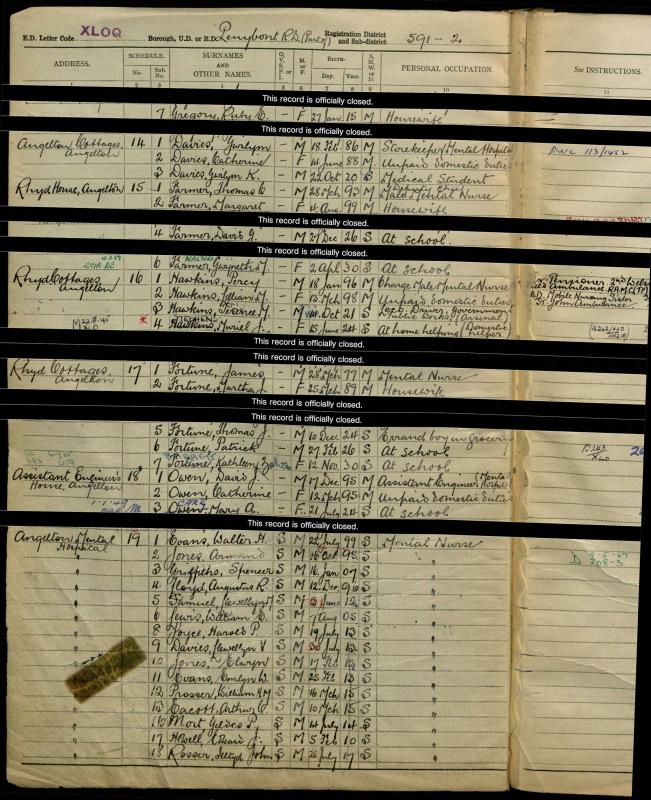 E.D. Letter Code XLOQ Borough, U.D. or R.D. Penybont R.D. (Part of) Registration District and Sub-district 591-2
ADDRESS. SCHEDULE. No. Sub. No. SURNAMES AND OTHER NAMES. O. V. S. P. or I. M. or F. BIRTH- Day. Year. S. M. W. or D. PERSONAL OCCUPATION. See INSTRUCTIONS.
1 2 3 4 5 6 7 8 9 10 11
This record is officially closed.
7 Gregory, Ruby E. - F 27 Jan 15 M Housewife
This record is officially closed.
Angelton Cottages, Angelton 14 1 Davies, Gwilym - M 18 Feb 86 M Storekeeper Mental Hospital
2 Davies, Catherine - F 14 June 88 M Unpaid Domestic Duties
3 Davies, Gwilym K. - M 22 Oct 20 S Medical Student
Rhyd House, Angelton 15 1 Farmer, Thomas C - M 28 Mch 93 M Deputy Chief Male Mental Nurse
2 Farmer, Margaret - F 4 Aug 99 M Housewife
This record is officially closed.
4 Farmer, David G. - M 27 Dec 26 S At school.
This record is officially closed.
6 Farmer, Gwyneth M. - F 2 Apl 30 S At school
Rhyd Cottages, Angelton 16 1 Hawkins, Percy - M 18 Jan 96 M Charge Male Mental Nurse
2 Hawkins, M. - F 13 Mch 98 M Unpaid Domestic Duties
3 Hawkins, Terence M. - M Oct 21 S Driver, Government Public Works (Arsenal)
4 Hawkins, Muriel J. - F 15 June 24 S At home helping (Domestic helper)
This record is officially closed.
This record is officially closed.
Rhyd Cottages, Angelton 17 1 Fortune, James - M 28 Mch 77 M Mental Nurse
2 Fortune, Martha - F 25 Mch 89 M Housewife
This record is officially closed.
This record is officially closed.
5 Fortune, Thomas J. - M 10 Dec 24 S Errand boy in Grocery
6 Fortune, Patrick - M 27 Feb 26 S At school
7 Fortune, Kathleen - F 12 Nov. 30 S At school
Assistant Engineer's House, Angelton 18 1 Owen, David J. - M 17 Dec 95 M Assistant Engineer (Mental Hospital)
2 Owen, Catherine - F 12 Mch 95 M Unpaid Domestic Duties
3 Owen, Mary A. - F 21 July 24 S At school
This record is officially closed.
Angelton Mental Hospital 19 1 Evans, Walter H. S M 22 July 99 S Mental Nurse
" 2 Jones, Armand S M 16 Oct 95 S "
" 3 Griffiths, Spencer S M 16 Jan 07 S "
" 4 Lloyd, Augustus R. S M 12 Dec 96 S "
" 5 Samuel, Llewellyn S M 21 June 12 S "
" 6 Lewis, William C. S M 7 Aug 05 S "
" 8 Joyce, Harold P. S M 19 July 13 S "
" 9 Davies, Llewellyn V S M 30 July 13 S "
10 Jones, Elwyn S M 17 Feb 14 S "
11 Evans, Emlyn W. S M 25 Feb 13 S "
12 Prosser, William H.M S M 16 Mch 15 S "
13 Cacott, Arthur C. S M 10 Mch 15 S "
16 Mort Gildas P. S M 14 July 14 S "
17 Howell, Edward J. S M 5 Feb 10 S "
18 Rosser, Illtyd John. S M 26 July 17 S "